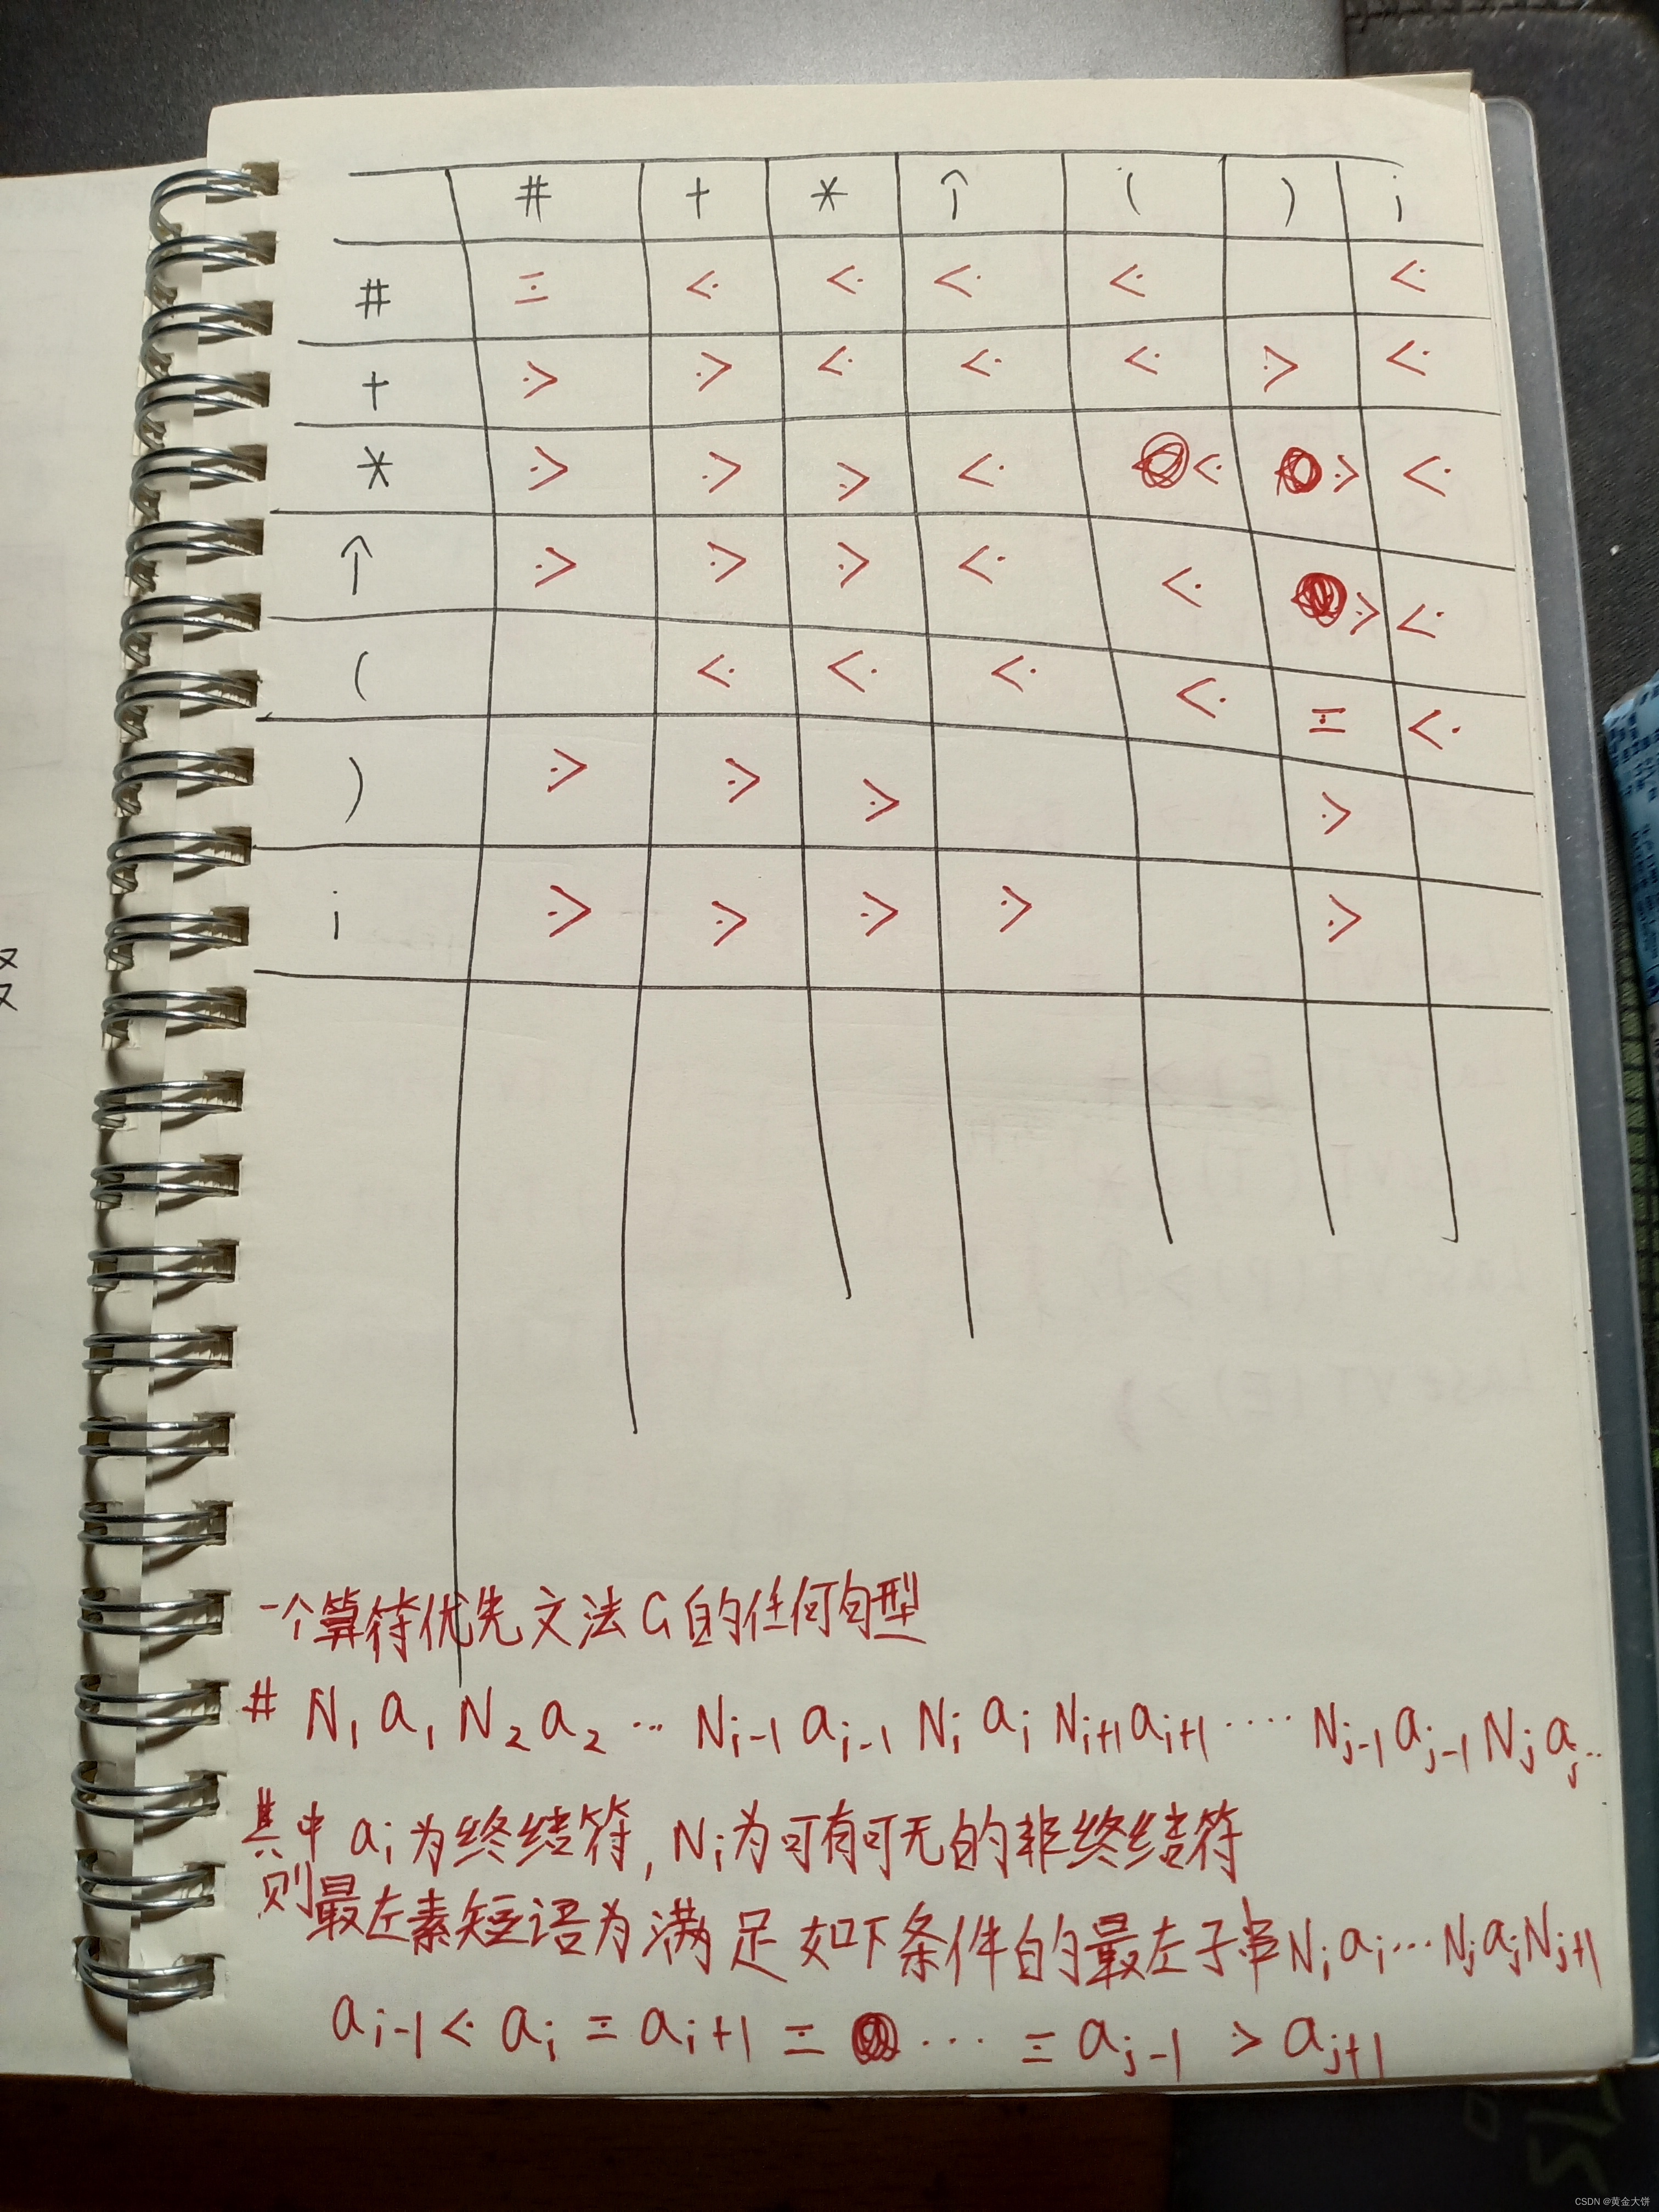 # + * ↑ ( ) i
# ≐ ⋖ ⋖ ⋖ ⋖ ⋖
+ ⋗ ⋗ ⋖ ⋖ ⋖ ⋗ ⋖
* ⋗ ⋗ ⋗ ⋖ ⋖ ⋗ ⋖
↑ ⋗ ⋗ ⋗ ⋖ ⋖ ⋗ ⋖
( ⋖ ⋖ ⋖ ⋖ ≐ ⋖
) ⋗ ⋗ ⋗ ⋗
i ⋗ ⋗ ⋗ ⋗ ⋗
一个算符优先文法G的任何句型
# N₁ a₁ N₂ a₂ … Nᵢ₋₁ aᵢ₋₁ Nᵢ aᵢ Nᵢ₊₁ aᵢ₊₁ …… Nⱼ₋₁ aⱼ₋₁ Nⱼ aⱼ…
其中 aᵢ为终结符, Nᵢ为可有可无的非终结符
则最左素短语为满足如下条件的最左子串 Nᵢ aᵢ … Nⱼ aⱼ Nⱼ₊₁
aᵢ₋₁ ⋖ aᵢ ≐ aᵢ₊₁ ≐ … ≐ aⱼ₋₁ ⋗ aⱼ₊₁
CSDN @黄金大饼